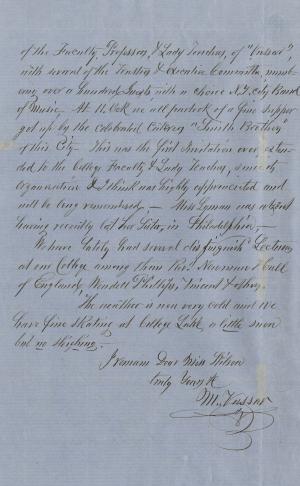 of the Faculty, Professors, & Lady Teachers, of "Vassar",
with several of the Trustees & Executive Committee, numb-
ering over a hundred Guests with a choice N.Y. City Band
of Music. At 11. Ock we all partook of a fine supper
got up by the celebrated Caterers "Smith Brothers"
of this City. This was the first Invitation ever exten-
ded to the College Faculty & Lady Teachers, since its
organization & I think was highly appreciated and
will be long remembered,— Miss Lyman was absent
having recently lost her Sister, in Philadelphia,—
We have lately had several distinguish Lectures
at our College among them Revs. Newman Hall
of England, Wendell Phillips, Vincent & others.
The weather is now very cold and we
have fine skating at College Lake, a little snow
but no sleighing.—
I remain Dear Miss
truly Yours
M. Vassar